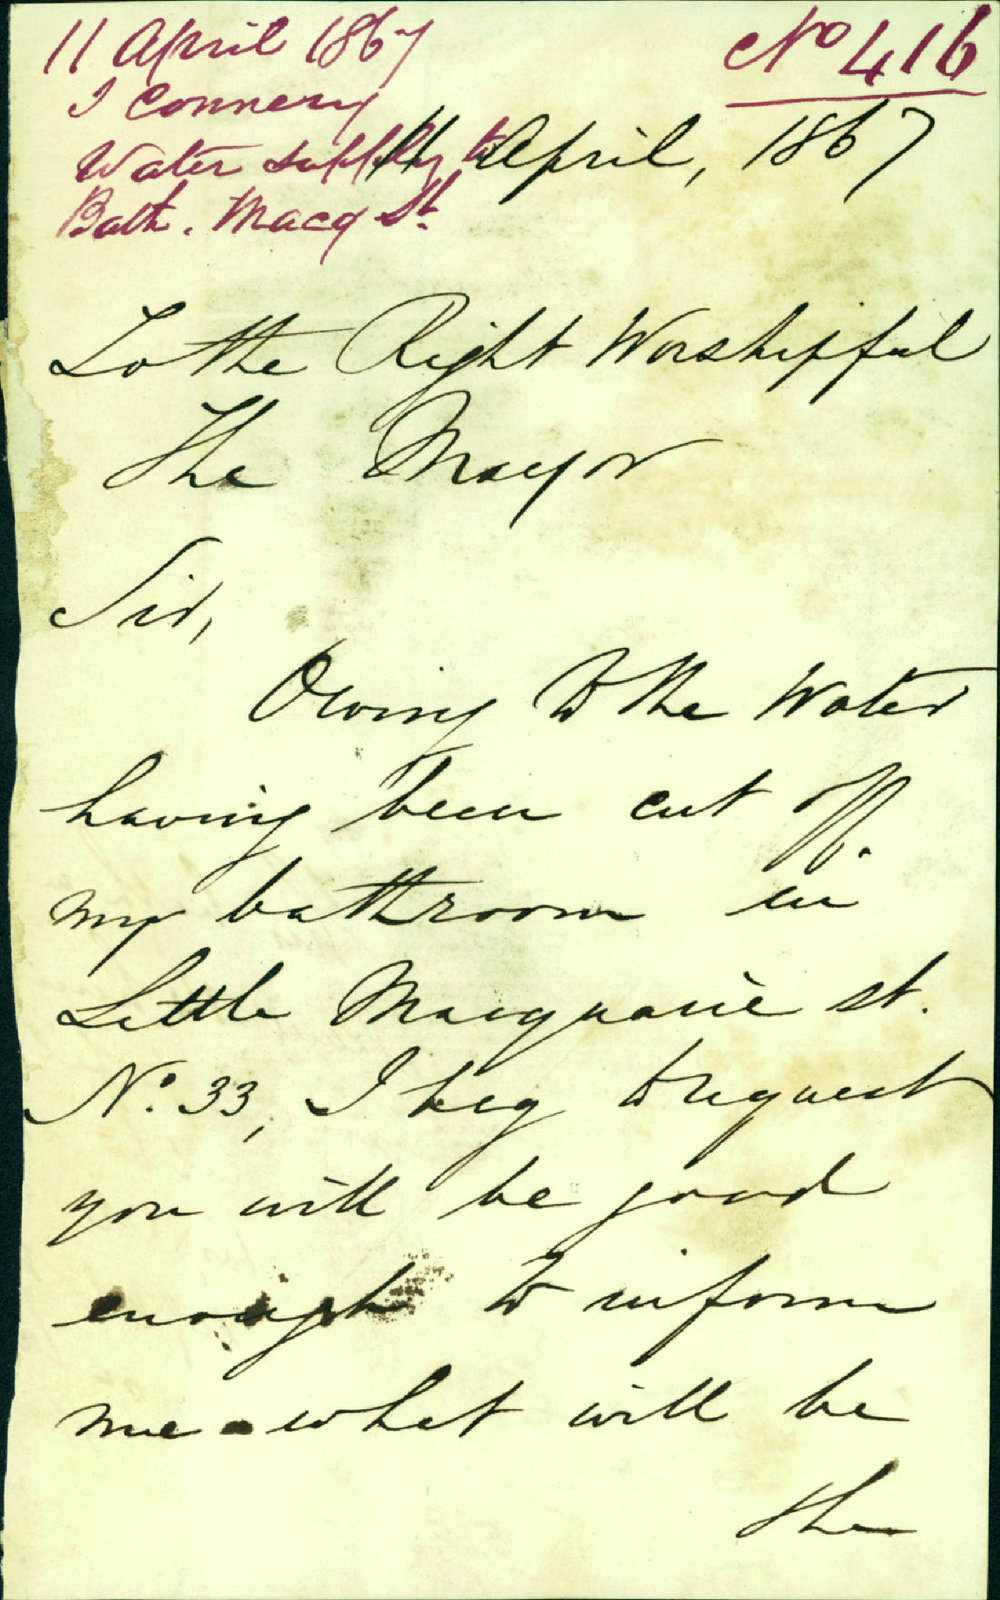 11 April 1867
No 416
I Connery
Water supply to
Bath. Macq St.
11 April, 1867
To the Right Worshipful
The Mayor
Sir,
Owing to the Water
having been cut off
my bathroom in
Little Macquarie st.
No. 33, I beg to request
you will be good
enough to inform
me what will be
the